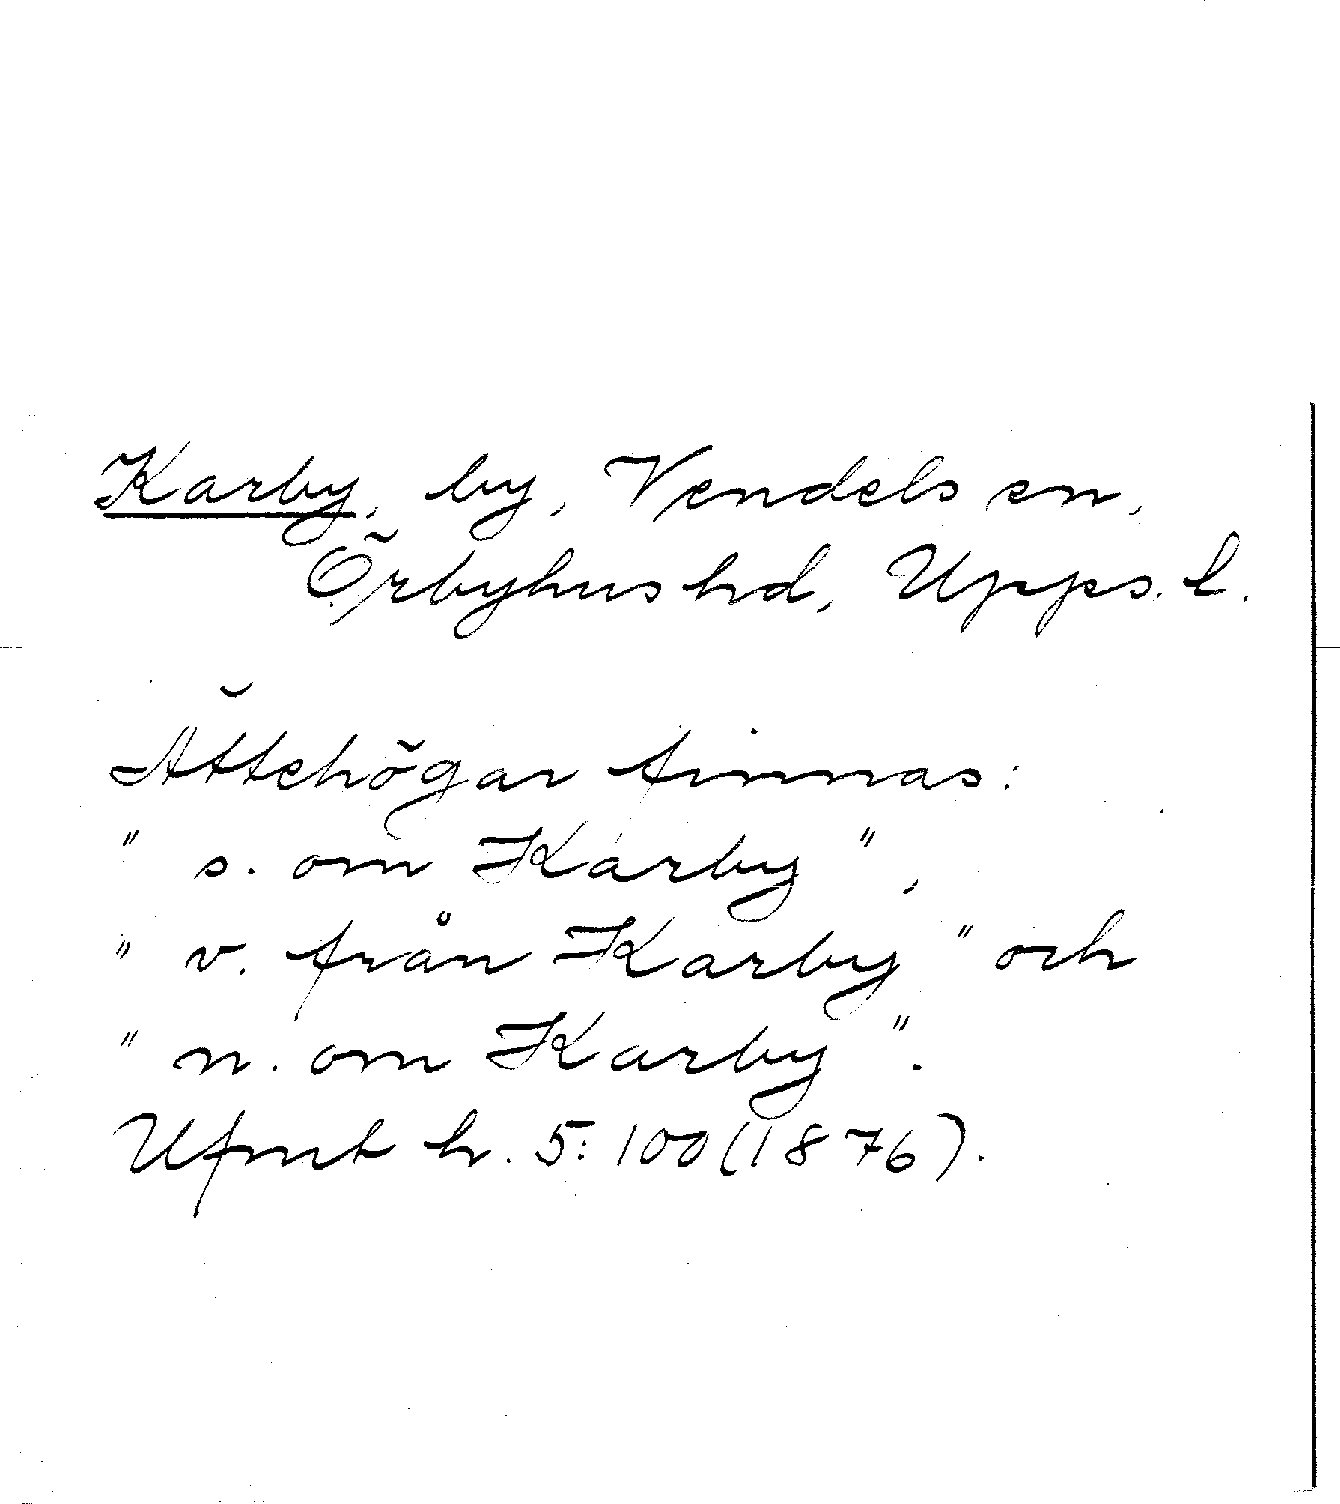 Karby, by, Vendels sn,
Örbyhus hd, Upps. l.
Ättehögar finnas:
" s. om Karby",
" v. från Karby" och
" n. om Karby".
Ufmt h. 5:100 (1876).